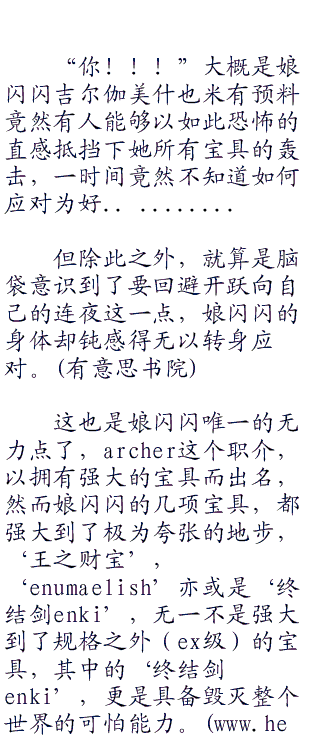 “你！！！”大概是娘
闪闪吉尔伽美什也米有预料
竟然有人能够以如此恐怖的
直感抵挡下她所有宝具的轰
击，一时间竟然不知道如何
应对为好.. ........
但除此之外，就算是脑
袋意识到了要回避开跃向自
己的连夜这一点，娘闪闪的
身体却钝感得无以转身应
对。(有意思书院)
这也是娘闪闪唯一的无
力点了，archer这个职介，
以拥有强大的宝具而出名，
然而娘闪闪的几项宝具，都
强大到了极为夸张的地步，
‘王之财宝’，
‘enumaelish’亦或是‘终
结剑enki’，无一不是强大
到了规格之外（ex级）的宝
具，其中的‘终结剑
enki’，更是具备毁灭整个
世界的可怕能力。(www.he